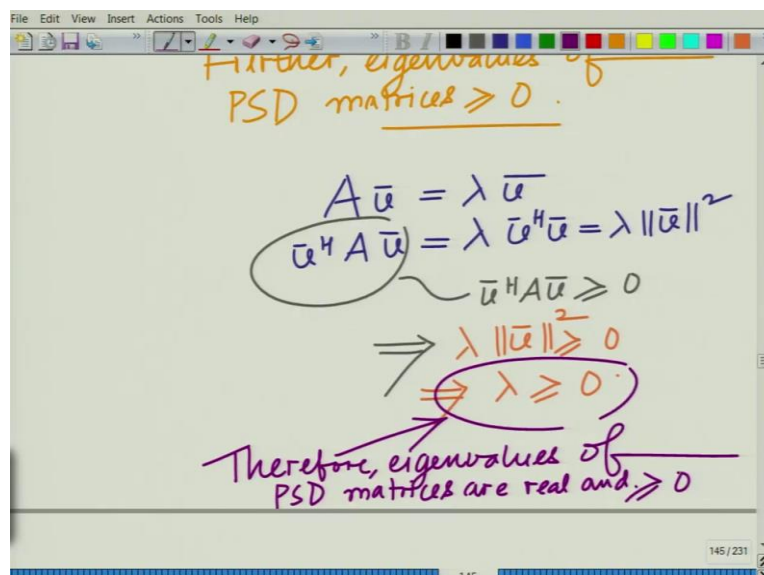 File Edit View Insert Actions Tools Help
Further, eigenvalues of
PSD matrices ≥ 0.
A ū = λ ū
ūᴴ A ū = λ ūᴴū = λ ||ū||²
ūᴴAū ≥ 0
⇒ λ ||ū||² ≥ 0
⇒ λ ≥ 0.
Therefore, eigenvalues of
PSD matrices are real and ≥ 0
145 / 231